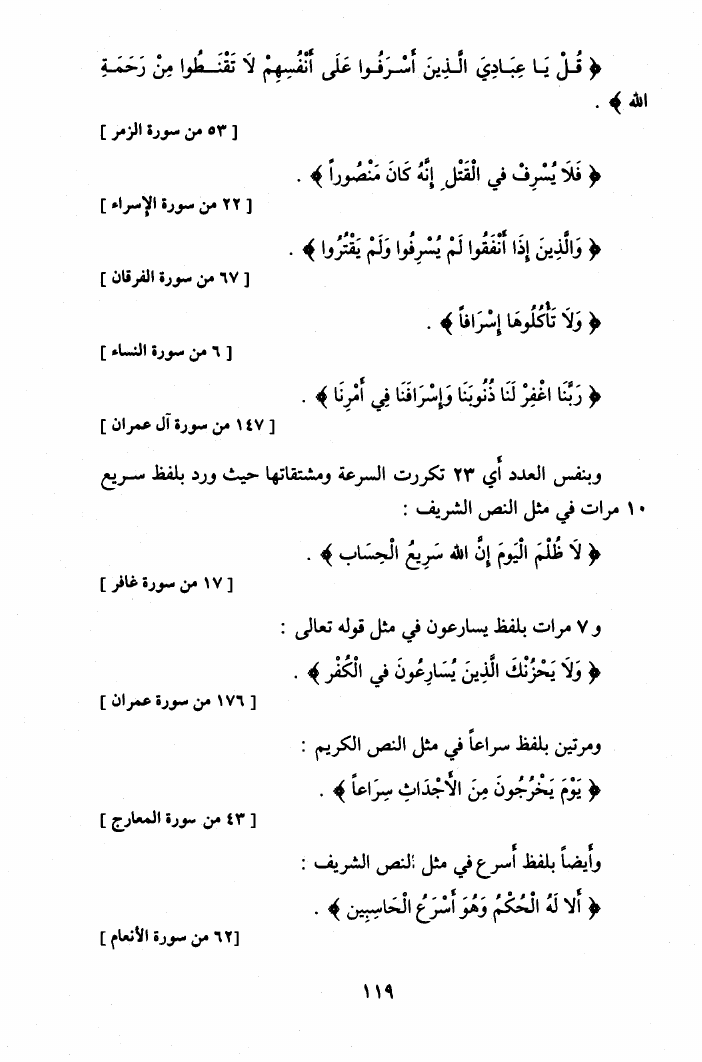 ﴿ قُـلْ يَـا عِبَـادِيَ الَّـذِينَ أَسْـرَفُـوا عَلَى أَنْفُسِهِمْ لَا تَقْنَـطُوا مِنْ رَحَمَـةِ
الله ﴾ .
[ ٥٣ من سورة الزمر ]
﴿ فَلَا يُسْرِفْ في الْقَتْلِ إِنَّهُ كَانَ مَنْصُوراً ﴾ .
[ ٢٢ من سورة الإسراء ]
﴿ وَالَّذِينَ إِذَا أَنْفَقُوا لَمْ يُسْرِفُوا وَلَمْ يَقْتُرُوا ﴾ .
[ ٦٧ من سورة الفرقان ]
﴿ وَلَا تَأْكُلُوهَا إِسْرَافاً ﴾ .
[ ٦ من سورة النساء ]
﴿ رَبَّنَا اغْفِرْ لَنَا ذُنُوبَنَا وَإِسْرَافَنَا فِي أَمْرِنَا ﴾ .
[ ١٤٧ من سورة آل عمران ]
وبنفس العدد أي ٢٣ تكررت السرعة ومشتقاتها حيث ورد بلفظ سـريع
١٠ مرات في مثل النص الشريف :
﴿ لَا ظُلْمَ الْيَومَ إِنَّ الله سَرِيعُ الْحِسَاب ﴾ .
[ ١٧ من سورة غافر ]
و ٧ مرات بلفظ يسارعون في مثل قوله تعالى :
﴿ وَلَا يَحْزُنْكَ الَّذِينَ يُسَارِعُونَ في الْكُفْر ﴾ .
[ ١٧٦ من سورة عمران ]
ومرتين بلفظ سراعاً في مثل النص الكريم :
﴿ يَوْمَ يَخْرُجُونَ مِنَ الأَجْدَاثِ سِرَاعاً ﴾ .
[ ٤٣ من سورة المعارج ]
وأيضاً بلفظ أسرع في مثل النص الشريف :
﴿ أَلا لَهُ الْحُكْمُ وَهُوَ أَسْرَعُ الْحَاسِبِين ﴾ .
[ ٦٢ من سورة الأنعام ]
١١٩